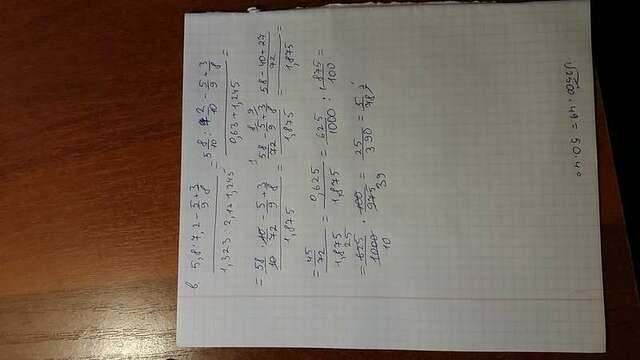 в. (5,8 : 7,2 - 5/9 + 3/8) / (1,323 : 2,1 + 1,245) = (5 8/10 : 7 2/10 - 5/9 + 3/8) / (0,63 + 1,245) =
= (58/10 · 10/72 - 5/9 + 3/8) / 1,875 = (58/72 - 5/9 + 3/8) / 1,875 = ((58 - 40 + 27)/72) / 1,875 =
= (45/72) / 1,875 = 0,625 / 1,875 = 625/1000 : 1 875/100 =
= 625/1000 · 100/975 = 25/390 = 5/78
√2500 · 49 = 50 · 40